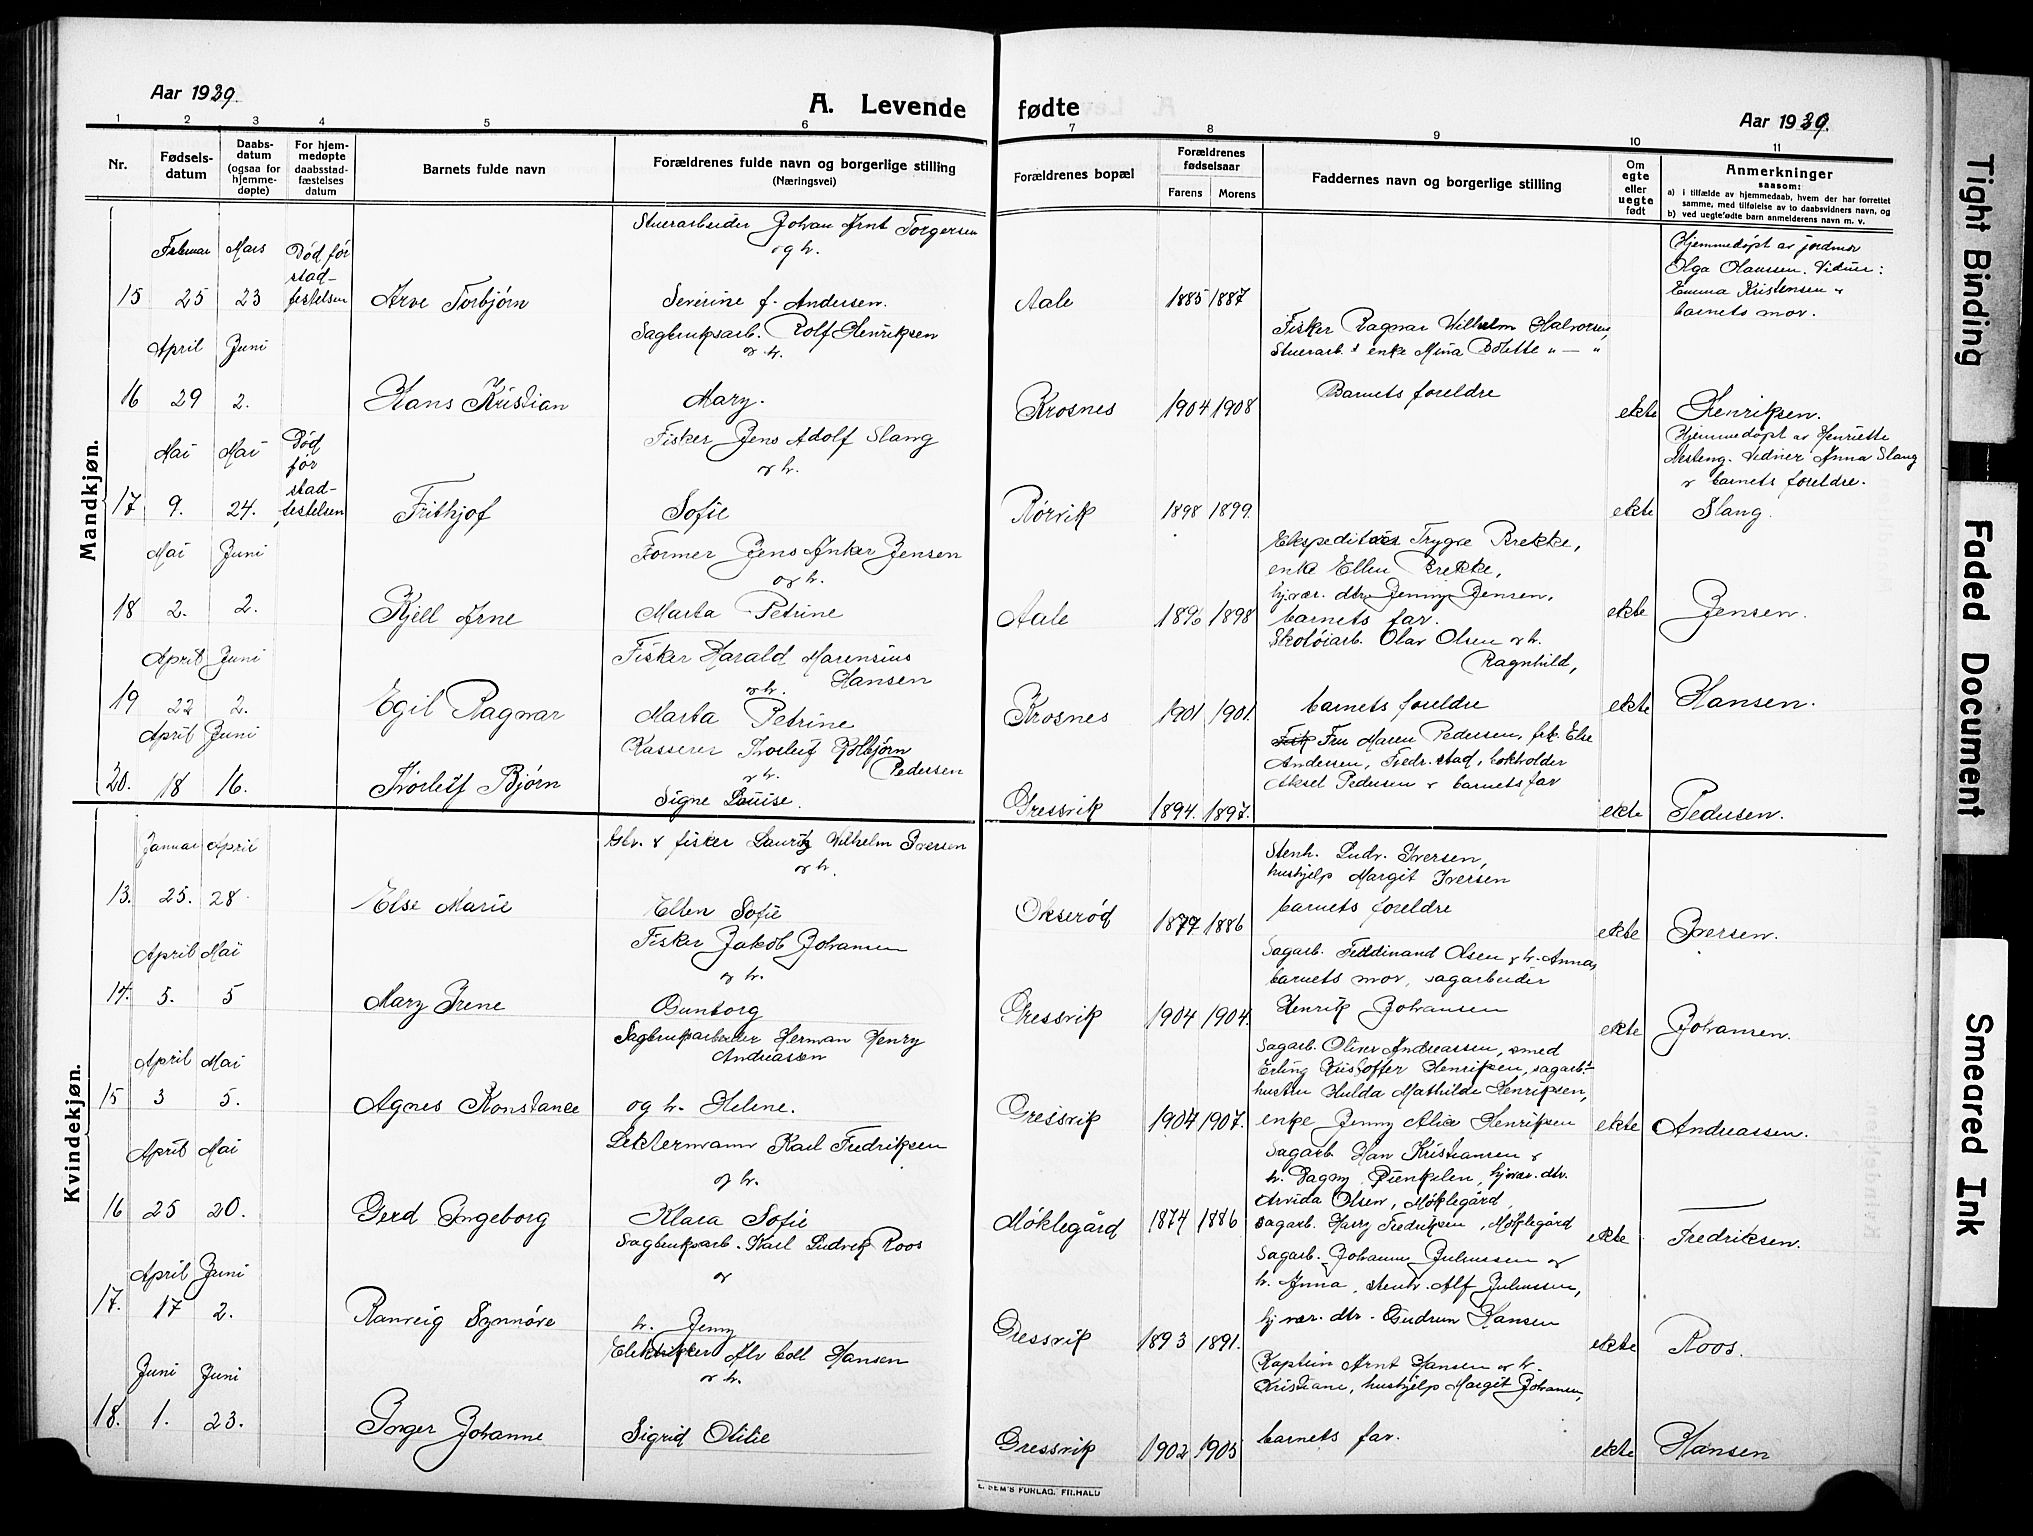 Aar 1929.
A. Levende fødte
Aar 1929.
1 2 3 4 5 6 7 8 9 10 11
Nr.
Fødsels-
datum
Daabs-
datum
(ogsaa for
hjemme-
døpte)
For hjem-
medøpte
daabsstad-
fæstelses
datum
Barnets fulde navn
Forældrenes fulde navn og borgerlige stilling
(Næringsvei)
Forældrenes bopæl
Forældrenes
fødselsaar
Farens Morens
Faddernes navn og borgerlige stilling
Om
egte
eller
uegte
født
Anmerkninger
saasom:
a) i tilfælde av hjemmedaab, hvem der har forrettet
samme, med tilføielse av to daabsvidners navn, og
b) ved uegtefødte barn anmelderens navn m. v.
Mandkjøn.
Februar Mars Død før
stad-
15 25 23 festelsen Arve Torbjørn
Stuerarbeider Johan Arnt Torgersen
og h.
Severine f. Andersen.
Aale 1885 1887
Hjemmedøpt av jordmor
Olga Olaussen. Vidner:
Emma Kristensen &
barnets mor.
April Juni
16 29 2. Hans Kristian
Sagbruksarb. Rolf Henriksen
og h.
Mary.
Krosnes 1904 1908
Fisker Ragnar Wilhelm Halvorsen,
Stuerarb.s enke Mina Bolette " — "
Barnets foreldre
ekte Henriksen.
Mai Mai Død
før
stad-
17 9. 24. festelsen Frithjof
Fisker Jens Adolf Slang
og h.
Sofie
Rørvik 1898 1899.
ekte
Hjemmedøpt av Henriette
Vesteng. Vidner Anna Slang
& barnets foreldre.
Slang.
Mai Juni
18 2. 2. Kjell Arne
Former Jens Anker Jensen
og h.
Marta Petrine
Aale 1896 1898
Ekspeditør Trygve Brekke,
enke Ellen Brekke,
hjvær. dtr. Jenny Jensen,
barnets far.
ekte Jensen.
April Juni
19 22 2. Egil Ragnar
Fisker Harald Marensius
Hansen
og h.
Marta Petrine
Krosnes 1901 1901.
Skotøiarb. Olav Olsen og h.
Ragnhild,
barnets foreldre
ekte Hansen.
April Juni
20. 18 16. Thorleif Bjørn
Kasserer Thorleif Kolbjørn
Pedersen
og h.
Signe Louise.
Gressvik 1894. 1897.
Fru Maren Pedersen, frk. Else
Andersen, Fredr.stad, bokholder
Aksel Pedersen & barnets far
ekte Pedersen.
Kvindekjøn.
Januar April
13. 25. 28. Else Marie
Gbr. & fisker Lauritz Wilhelm Iversen
og h.
Ellen Sofie
Okserød 1877 1886
Stenh. Ludv. Iversen,
hushjelp Margit Iversen
barnets foreldre
ekte Iversen.
April Mai
14. 5. 5 Mary Irene
Fisker Jakob Johansen
og h.
Gunborg
Gressvik 1904 1904.
Sagarb. Ferdinand Olsen & h. Anna,
barnets mor, sagarbeider
Henrik Johansen
ekte Johansen.
April Mai
15 3 5. Agnes Konstance
Sagbruksarbeider Herman Henry
Andreassen
og h. Helene.
Gressvik 1904 1907.
Sagarb. Oliver Andreassen, smed
Erling Kristoffer Henriksen, sagarb.s
hustru Hulda Mathilde Henriksen,
enke Jenny Alice Henriksen
ekte Andreassen.
April Mai
16 25 20. Gerd Ingeborg
Lektermann Karl Fredriksen
og h.
Klara Sofie
Møklegård 1874 1886
Sagarb. Han Kristiansen &
h. Dagny, hjvær. dtr.
Arvida Olsen, Møklegård,
sagarb. Harry Fredriksen, Møklegård
ekte Fredriksen.
April Juni
17. 17 2. Ranveig Synnøve
Sagbruksarb. Karl Ludvik Roos
og
h. Jenny
Gressvik 1893 1891.
Sagarb. Johannes Juliussen og
h. Anna, stenh. Alf Juliussen,
hjvær. dtr. Gudrun Hansen
ekte Roos.
Juni Juni
18. 1. 23. Inger Johanne
Elektriker Alv Coll Hansen
og h.
Sigrid Otilie
Gressvik 1902 1905
Kaptein Arnt Hansen og h.
Kristiane, hushjelp Margit Johansen,
barnets far.
ekte Hansen
E. SEM'S FORLAG, FR.HALD
Tight Binding
Faded Document
Smeared Ink